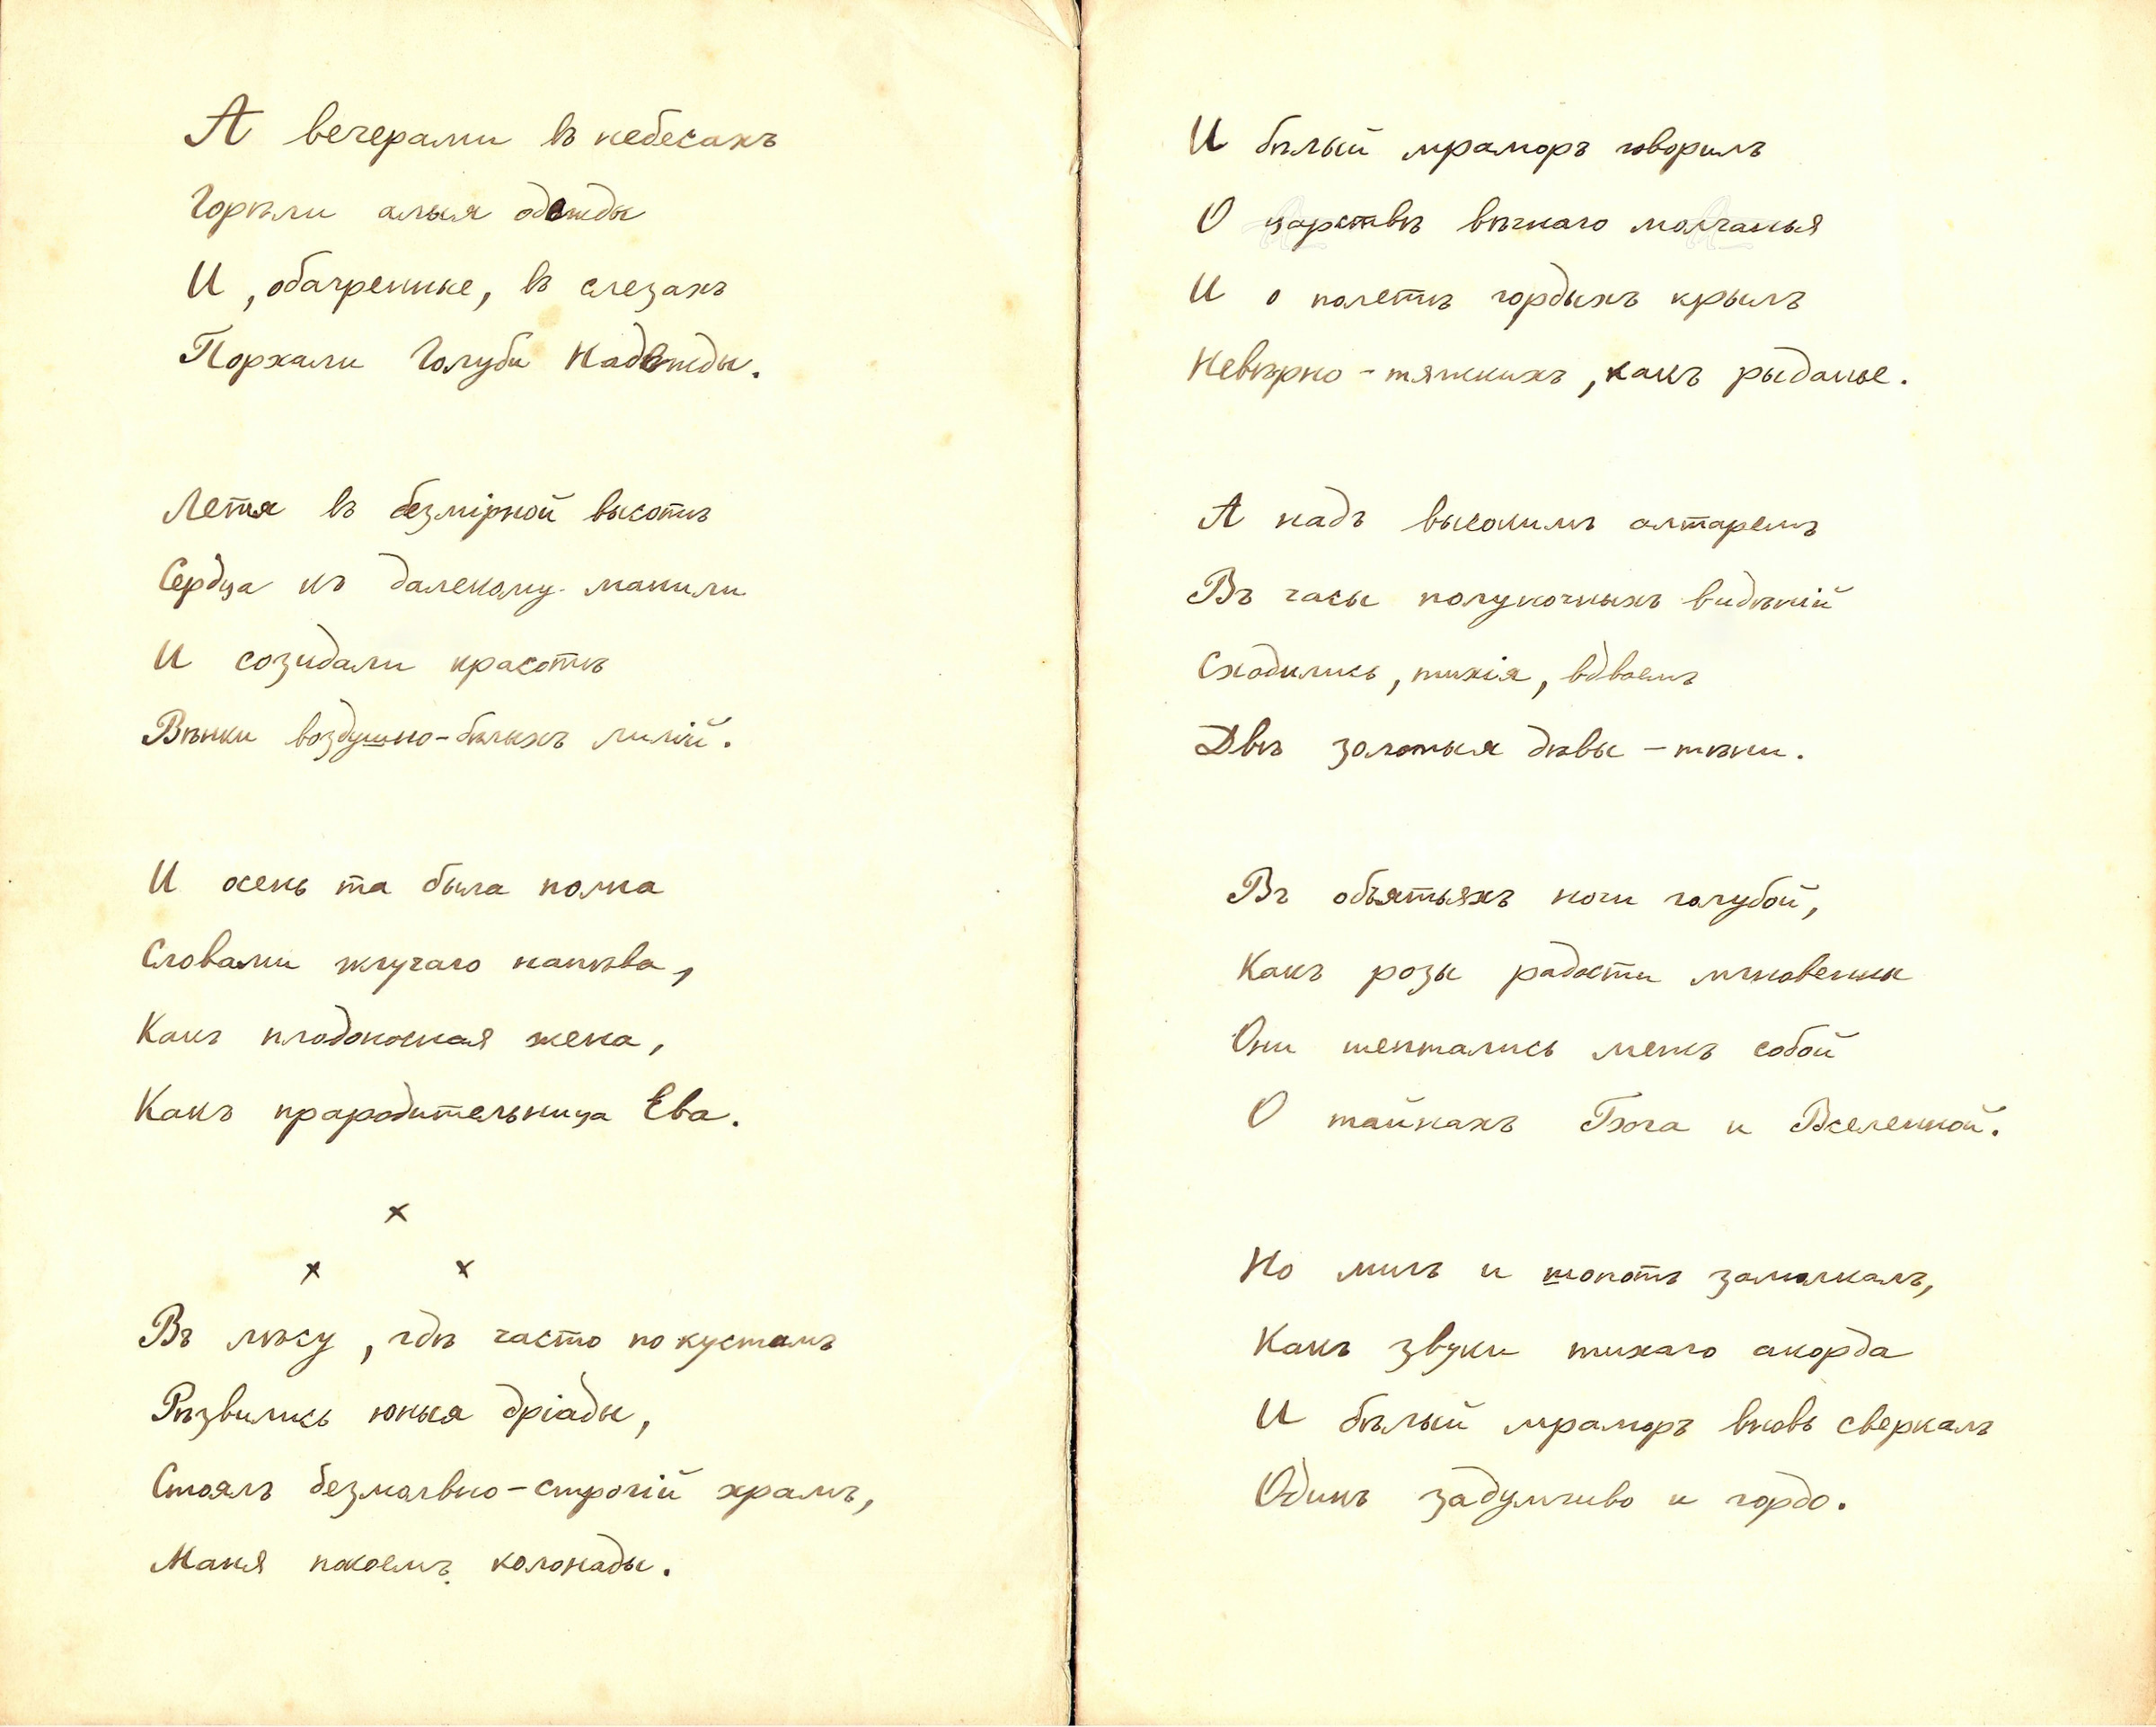 А вечерами въ небесахъ
Горѣли алыя одежды
И, обагренные, въ слезахъ
Порхали Голуби Надежды.
Летя въ безмірной высотѣ
Сердца къ далекому манили
И созидали красотѣ
Вѣнки воздушно-бѣлыхъ лилій.
И осень та была полна
Словами жгучаго напѣва,
Какъ плодоносная жена,
Какъ прародительница Ева.
х
х х
Въ лѣсу, гдѣ часто по кустамъ
Рѣзвились юныя дріады,
Стоялъ безмолвно-строгій храмъ,
Маня покоемъ колонады.
И бѣлый мраморъ говорилъ
О царствѣ вѣчнаго молчанья
И о полетѣ гордыхъ крылъ
Невѣрно-тяжкихъ, какъ рыданье.
А надъ высокимъ алтаремъ
Въ часы полуночныхъ видѣній
Сходились, тихія, вдвоемъ
Двѣ золотыя дѣвы-тѣни.
Въ объятьяхъ ночи голубой,
Какъ розы радости мгновенны
Они шептались межъ собой
О тайнахъ Бога и Вселенной.
Но мигъ и шопотъ замолкалъ,
Какъ звуки тихаго акорда
И бѣлый мраморъ вновь сверкалъ
Одинъ задумчиво и гордо.